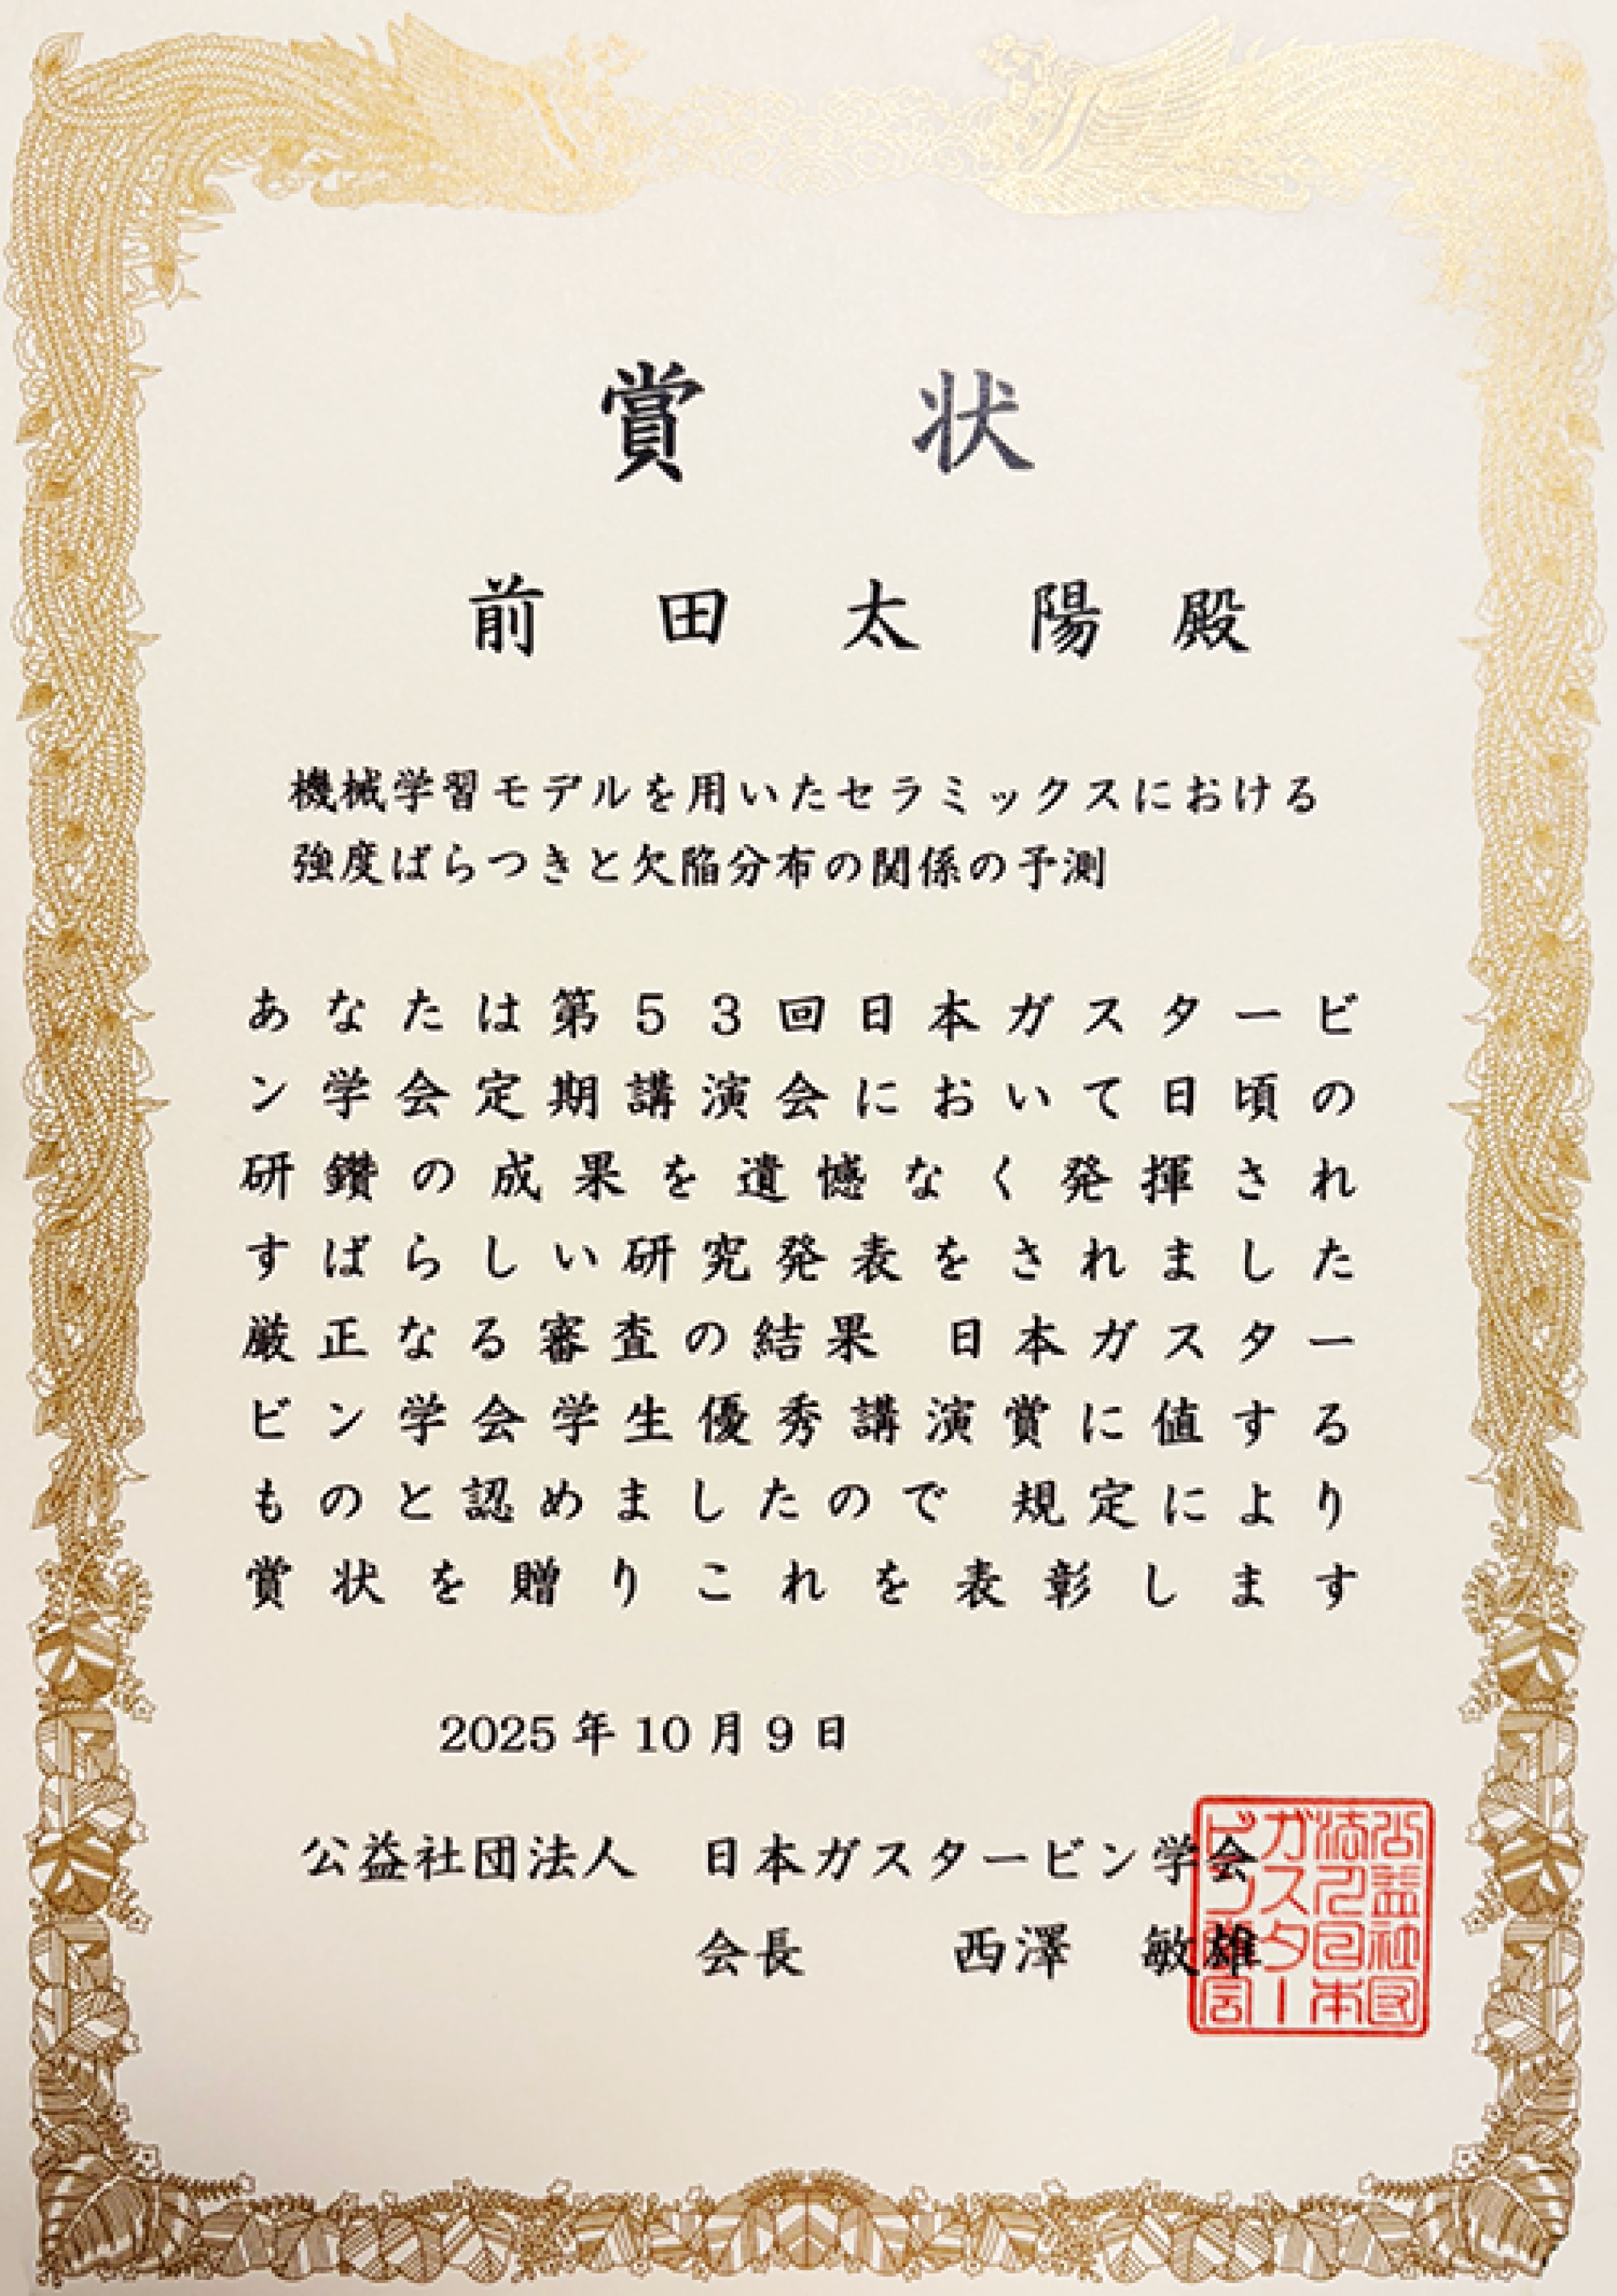 賞状
前田太陽殿
機械学習モデルを用いたセラミックスにおける
強度ばらつきと欠陥分布の関係の予測
あなたは第５３回日本ガスタービ
ン学会定期講演会において日頃の
研鑽の成果を遺憾なく発揮され
すばらしい研究発表をされました
厳正なる審査の結果　日本ガスター
ビン学会学生優秀講演賞に値する
ものと認めましたので　規定により
賞状を贈りこれを表彰します
2025年10月9日
公益社団法人　日本ガスタービン学会
会長　西澤　敏雄
公益社団
法人日本
ガスター
ビン学会